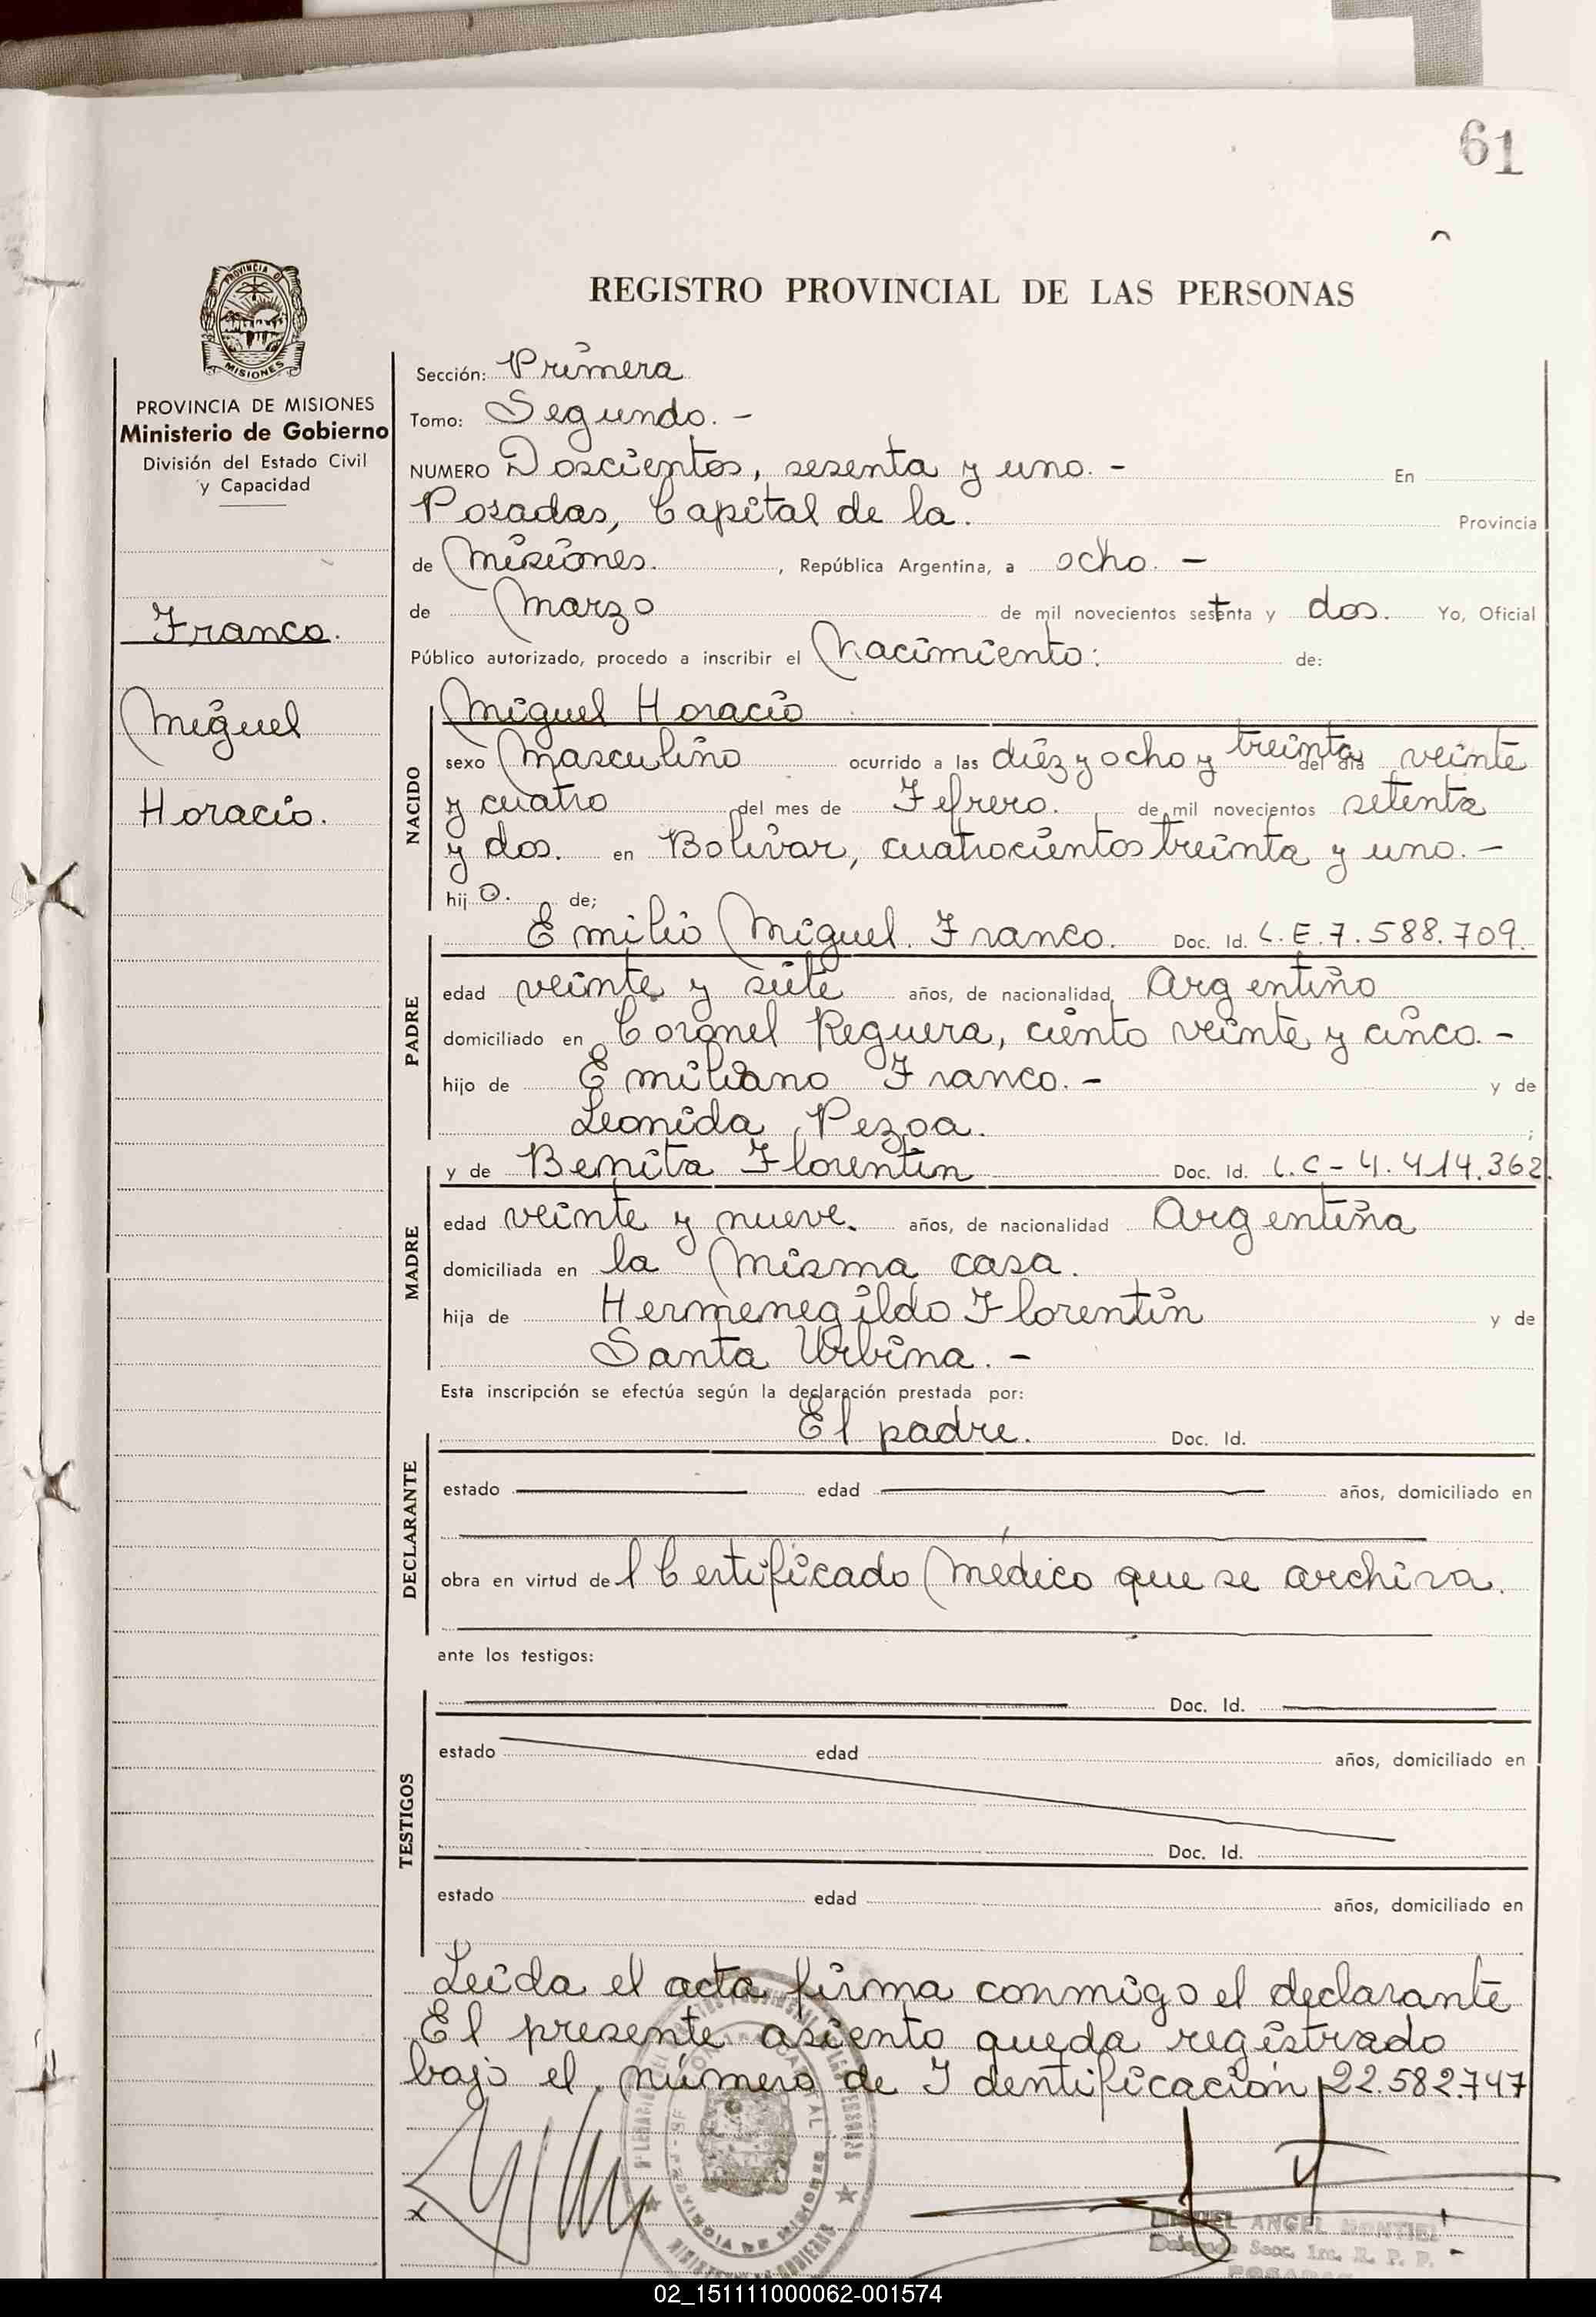 61
REGISTRO PROVINCIAL DE LAS PERSONAS
PROVINCIA DE
MISIONES
PROVINCIA DE MISIONES
Ministerio de Gobierno
División del Estado Civil
y Capacidad
Franco.
Miguel
Horacio.
Sección: Primera
Tomo: Segundo. -
NUMERO Doscientos, sesenta y uno. - En
Posadas, Capital de la. Provincia
de Misiones. , República Argentina, a ocho. -
de Marzo de mil novecientos setenta y dos. Yo, Oficial
Público autorizado, procedo a inscribir el Nacimiento: de:
NACIDO
Miguel Horacio
sexo Masculino ocurrido a las diéz y ocho y treinta del día veinte
y cuatro del mes de Febrero. de mil novecientos setenta
y dos. en Bolivar, cuatrocientos treinta y uno. -
hij o. de;
PADRE
Emilio Miguel. Franco. Doc. Id. L.E.7.588.709.
edad veinte y siete años, de nacionalidad Argentino
domiciliado en Coronel Reguera, ciento veinte y cinco. -
hijo de Emiliano Franco. - y de
Leonida Pezoa. ;
MADRE
y de Benita Florentin Doc. Id. L.C - 4.414.362.
edad veinte y nueve. años, de nacionalidad Argentina
domiciliada en la Misma casa.
hija de Hermenegildo Florentin y de
Santa Urbina. -
Esta inscripción se efectúa según la declaración prestada por:
DECLARANTE
El padre. Doc. Id.
estado edad años, domiciliado en
obra en virtud de l Certificado Médico que se archiva.
ante los testigos:
TESTIGOS
Doc. Id.
estado edad años, domiciliado en
Doc. Id.
estado edad años, domiciliado en
Leida el acta firma conmigo el declarante
El presente asiento queda registrado
bajo el número de Identificación 22.582.747
x
MIGUEL ANGEL MONTIEL
Delegado Secc. 1ra. R. P. P.
POSADAS
02_151111000062-001574